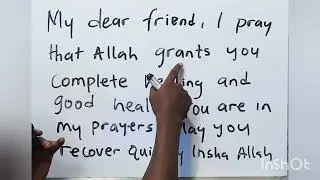 My dear friend, I pray
that Allah grants you
Complete and
good you are in
my prayers may you
recover Insha Allah
InShot